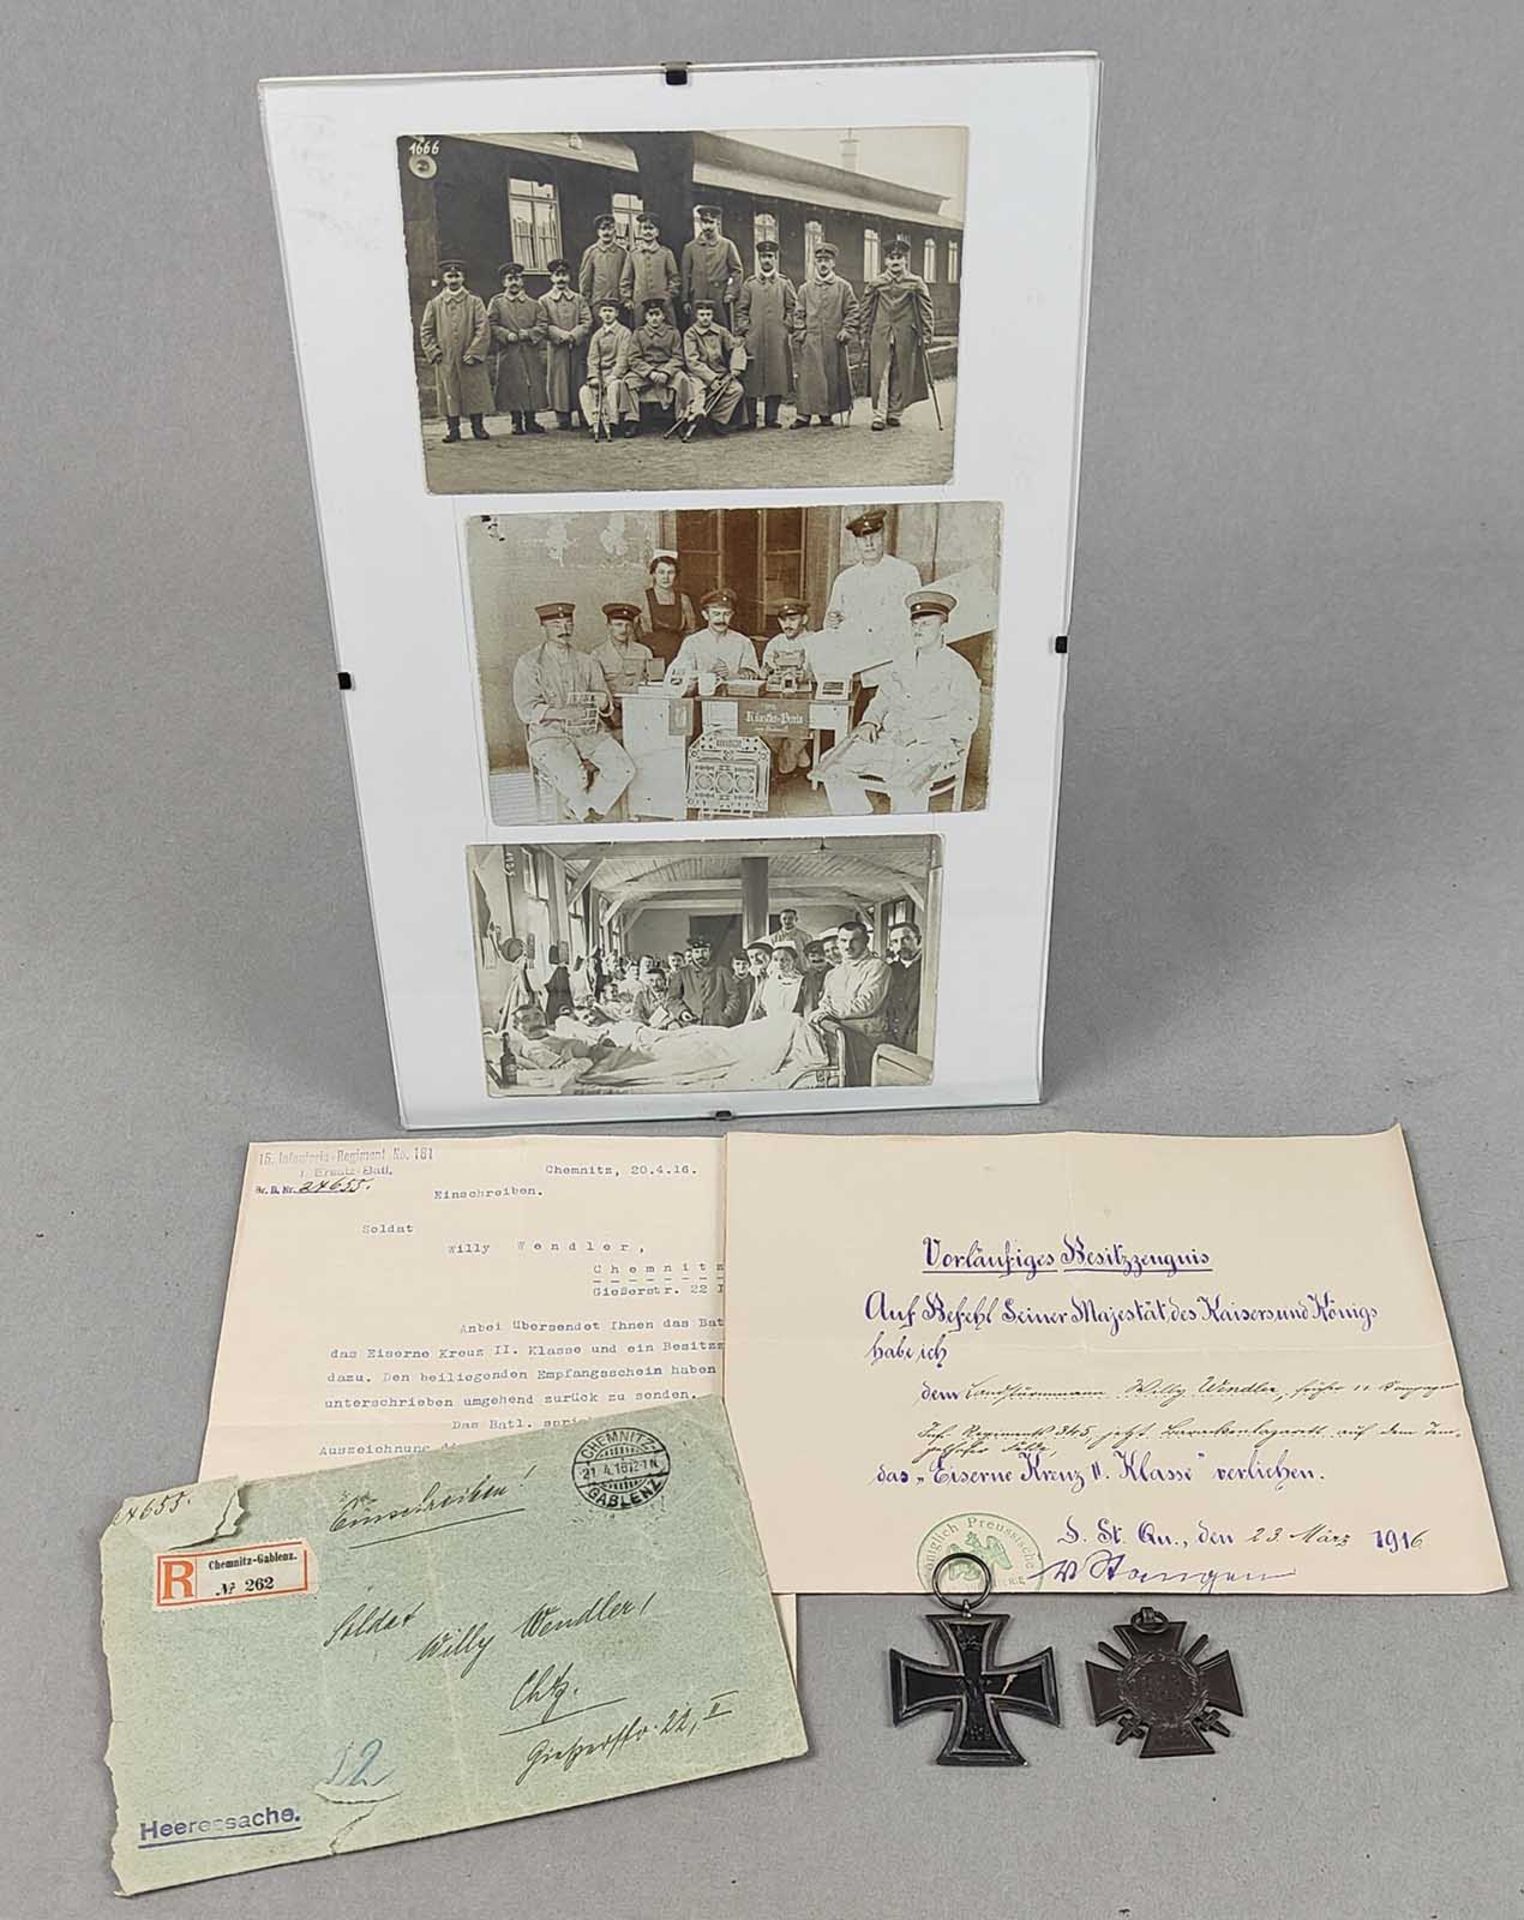 1666
Künstler-
15. Infanterie-Regiment No. 181
1. Ersatz-Batl.
Br. B. Nr. 24655.
Chemnitz, 20.4.16.
Einschreiben.
Soldat
Willy Wendler,
Chemnitz
Gießerstr. 22 I
Anbei übersendet Ihnen das Bat
das Eiserne Kreuz II. Klasse und ein Besitzz
dazu. Den beiliegenden Empfangsschein haben
unterschrieben umgehend zurück zu senden.
Das Batl.
Auszeichnung
Vorläufiges Besitzzeugnis
Auf Befehl Seiner Majestät des Kaisers und Königs
habe ich
dem Landsturmmann Willy Wendler, früher 11. Kompagnie
Inf. Regiments 345, jetzt Barackenlazarett auf dem Tem-
pelhofer Felde,
das „Eiserne Kreuz II. Klasse" verliehen.
D. St. Qu., den 23. März 1916
Königlich Preussische
24655.
Einschreiben!
CHEMNITZ-
21.4.16 12-1N
GABLENZ
R
Chemnitz-Gablenz.
№ 262
Soldat
Willy Wendler,
Chtz.
Gießerstr. 22, II
Heeressache.